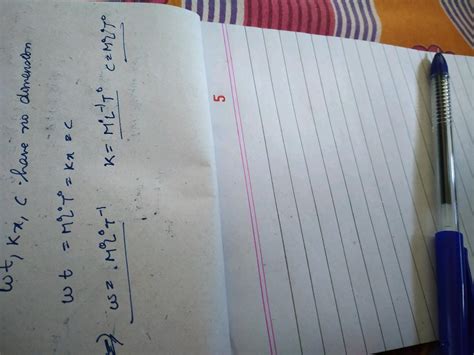 wt, Kx, c have no dimension
wt = M⁰L⁰T⁰ = Kx = c
⇒) w = M⁰L⁰T⁻¹ K = M⁰L⁻¹T⁰ C = M⁰L⁰T⁰
5